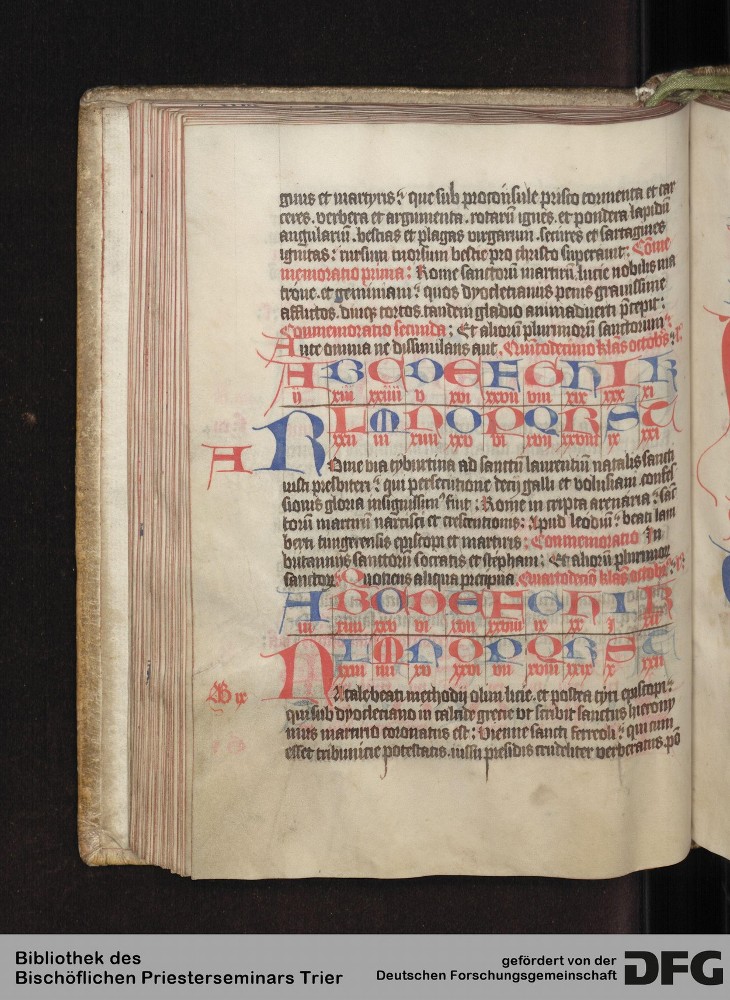 guinis et martyris: que sub proconsule prisco tormenta et car
ceres. verbera et argumenta. rotarū ignes. et pondera lapidū
angulariū. bestias et plagas virgarum. secures et sartagines
ignitas: rursum morsum bestie pro christo superauit: Cōme
memoratio prima: Rome sanctorū martirū lucie nobilis ma
trone. et geminiani: quos dyoclecianus penis grauissime
afflictos. diuque tortos. tandem gladio animaduerti p̄cepit:
Commemoratio secunda: Et aliorū plurimorū sanctorum:
Ante omnia ne dissimilans aut. Quītodecimo klas octobris:
A B C D E F G H I K
ij xiij xxiiij v xvi xxvij viij xix xxx xi
L M N O P Q R S T
xxij iij xiiij xxv vi xvij xxviij ix xxi
A
Rome via tyburtina ad sanctū laurentiū natalis sancti
iusti presbiteri: qui persecutione decij galli et volusiani confes
sionis gloria insignissim9 fuit: Rome in cripta arenaria: sāc
torū martirū narcisci et crescentionis: Apud leodiū: beati lam
berti tungerensis episcopi et martiris: Commemoratio In
britannijs sanctorū socratis et stephani: Et aliorū plurimor
sanctor: Quotiens aliqua precipua. Quartodecīo klas octobr:
A B C D E F G H I K
iij xiiij xxv vi xvij xxviij ix xx j xij
L M N O P Q R S T
xxiij iiij xv xxvi vij xviij xxix x xxij
B ix
Natale beati methodij olim licie. et postea tyri episcopi:
qui sub dyocleciano in calcide grecie vt scribit sanctus hierony
mus martirio coronatus est: Vienne sancti ferreoli: qui cum
esset tribunicie potestatis. iussu presidis crudeliter verberatus. pō
Bibliothek des
Bischöflichen Priesterseminars Trier
gefördert von der
Deutschen Forschungsgemeinschaft
DFG